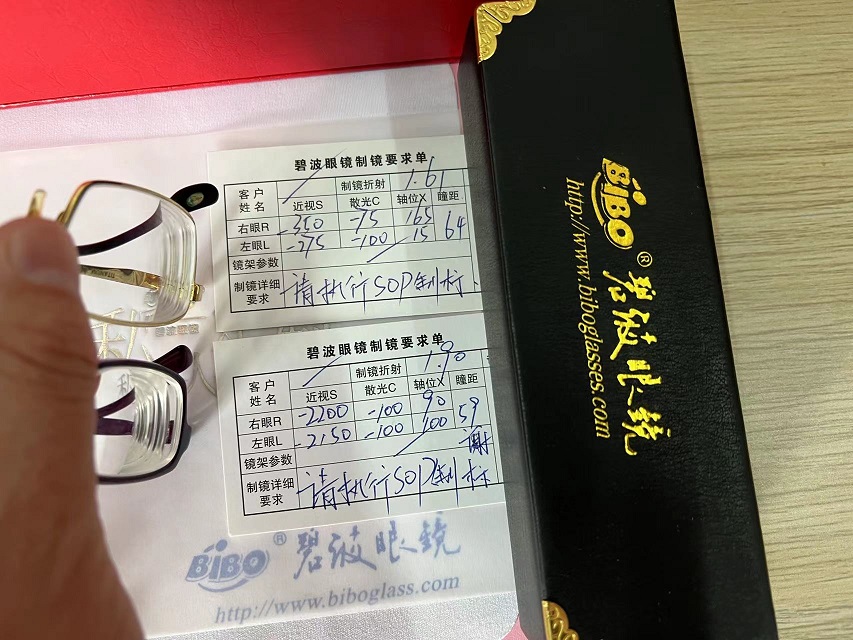 碧波眼镜制镜要求单
客户姓名 制镜折射 1.61
近视S 散光C 轴位X 瞳距
右眼R -350 -75 165 64
左眼L -275 -100 15
镜架参数
制镜详细要求 请执行SOP制标
碧波眼镜制镜要求单
客户姓名 制镜折射 1.90
近视S 散光C 轴位X 瞳距
右眼R -2200 -100 90 59
左眼L -2150 -100 100
镜架参数
制镜详细要求 请执行SOP制标
BiBO® 碧波眼镜
http://www.biboglass.com
BiBO® 碧波眼镜
http://www.biboglasses.com